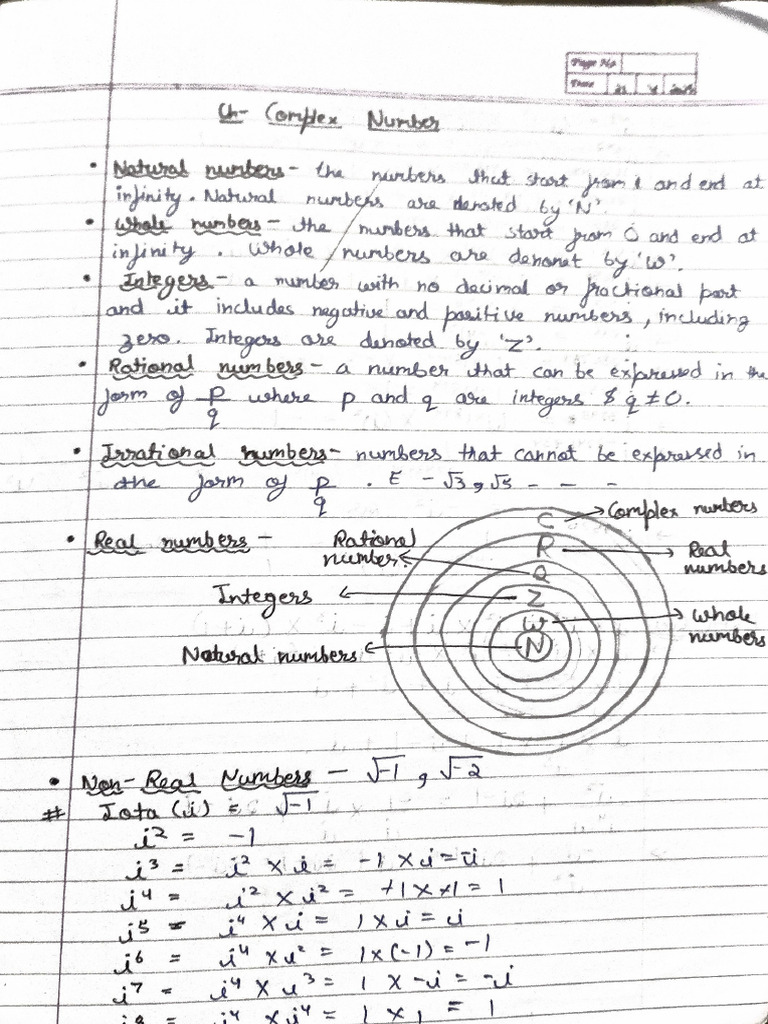 Page No
Date
Ch- Complex Number
• Natural numbers - the numbers that start from 1 and end at
infinity. Natural numbers are denoted by 'N'.
• Whole numbers - the numbers that start from 0 and end at
infinity. Whole numbers are denonet by 'W'.
• Integers - a number with no decimal or fractional part
and it includes negative and positive numbers, including
zero. Integers are denoted by 'Z'.
• Rational numbers - a number that can be expressed in the
form of p/q where p and q are integers & q ≠ 0.
• Irrational numbers - numbers that cannot be expressed in
the form of p/q . E - √3, √5 - - -
• Real numbers -
C → Complex numbers
Rational number
R → Real numbers
Q
Integers ← Z
W → Whole numbers
Natural numbers ← N
• Non-Real Numbers - √-1, √-2
# Iota (i) = √-1
i² = -1
i³ = i² × i = -1 × i = -i
i⁴ = i² × i² = +1 × +1 = 1
i⁵ = i⁴ × i = 1 × i = i
i⁶ = i⁴ × i² = 1×(-1) = -1
i⁷ = i⁴ × i³ = 1 × -i = -i
i⁸ = i⁴ × i⁴ = 1 × 1 = 1